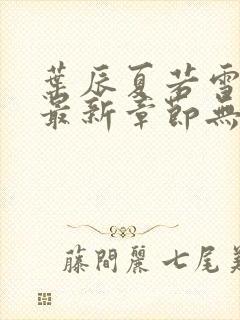 葉辰夏若雪
最新章節無
藤間麗 七尾美